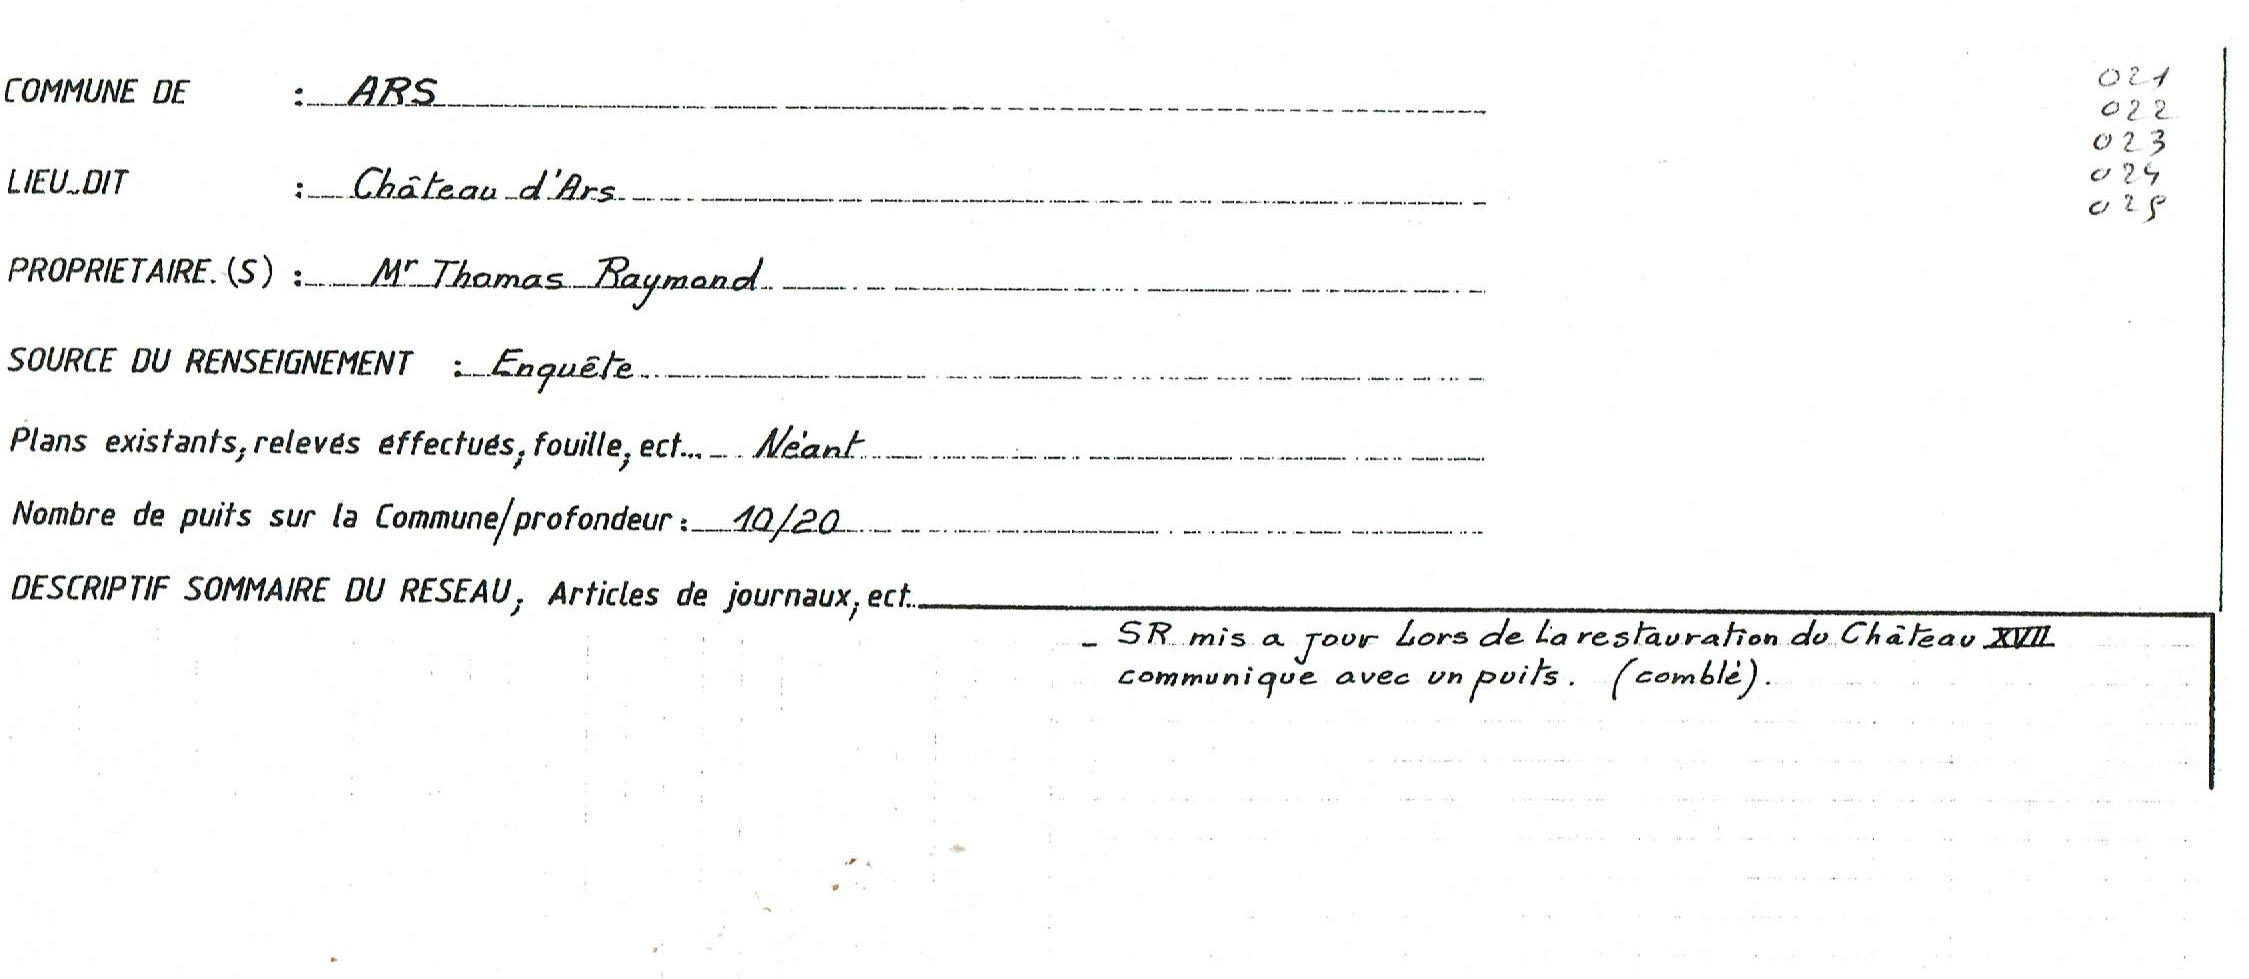 COMMUNE DE : ARS
021
022
023
024
025
LIEU-DIT : Château d'Ars
PROPRIETAIRE.(S) : Mr Thomas Raymond
SOURCE DU RENSEIGNEMENT : Enquête
Plans existants, relevés effectués, fouille, ect... Néant
Nombre de puits sur la Commune/profondeur : 10/20
DESCRIPTIF SOMMAIRE DU RESEAU, Articles de journaux, ect..
- SR mis a jour Lors de La restauration du Château XVII
communique avec un puits. (comblé).